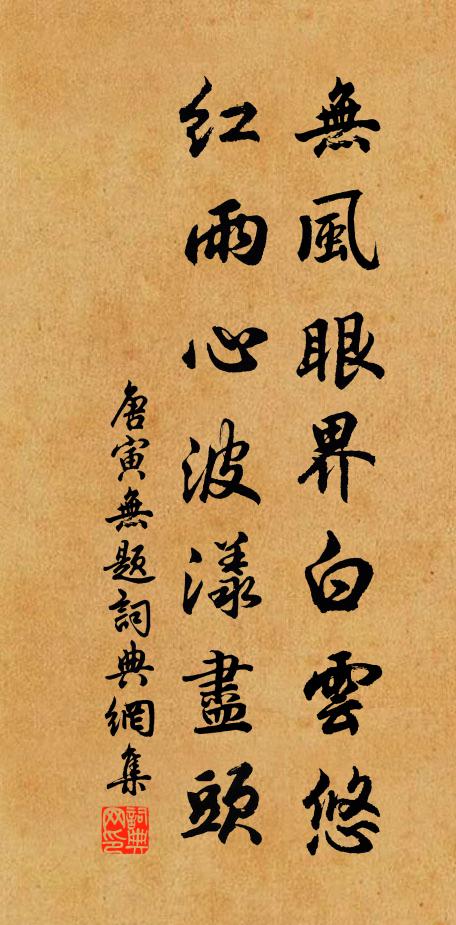 無風眼界白雲悠
紅雨心波漾盡頭
唐寅無題詞典網集
詞典网印